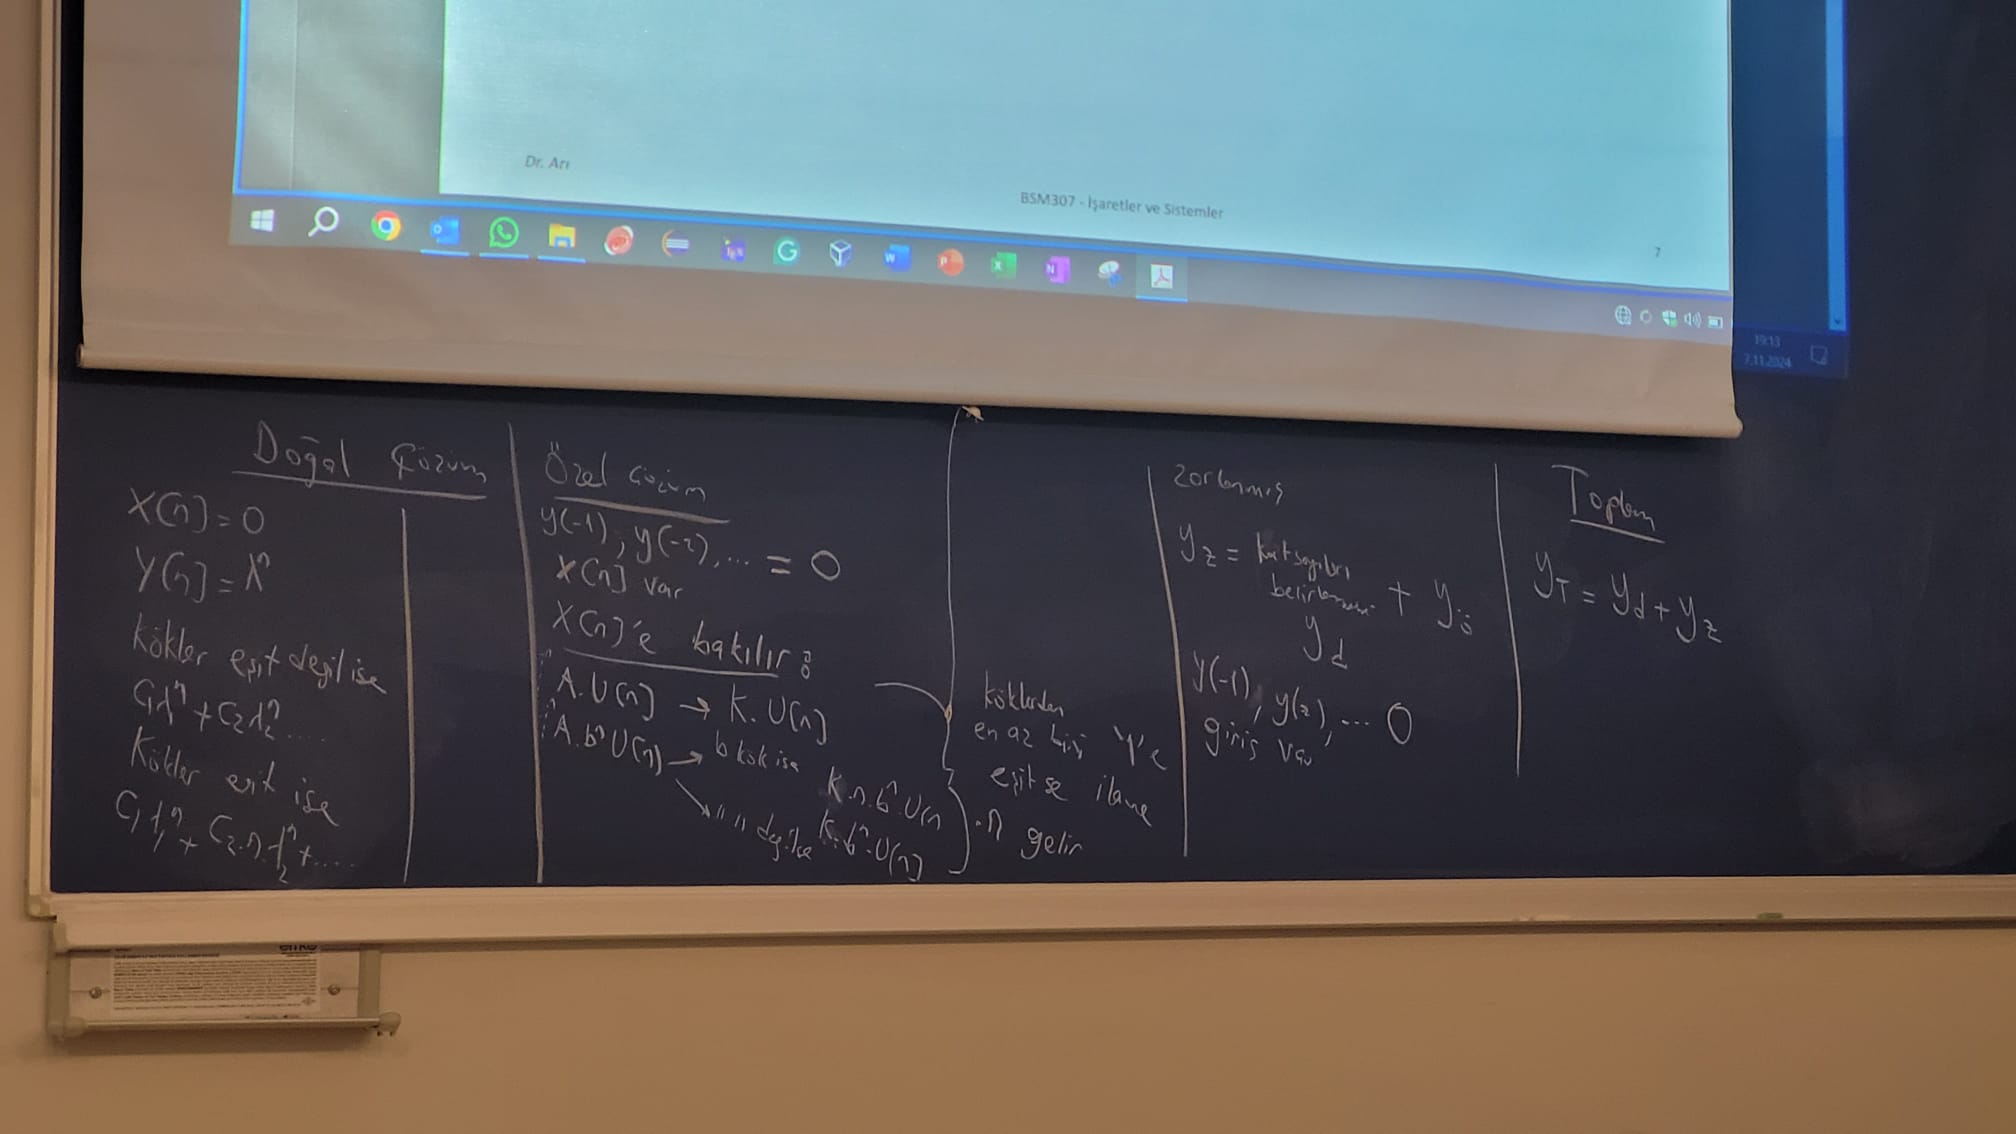 Dr. Arı
BSM307 - İşaretler ve Sistemler
7
19:13
7.11.2024
Doğal Çözüm
X[n] = 0
Y[n] = λⁿ
Kökler eşit değil ise
C₁λ₁ⁿ + C₂λ₂ⁿ ....
Kökler eşit ise
C₁λ₁ⁿ + C₂.n.λ₂ⁿ + ....
Özel Çözüm
y(-1), y(-2), ... = 0
X[n] var
X[n]'e bakılır :
A.U[n] → K.U[n]
A.bⁿU[n] → b kök ise K.n.bⁿ.U[n
↘ " " değilse K.bⁿ.U[n]
} .n
köklerden
en az biri '1'e
eşit se ilave
gelir
Zorlanmış
y_z = katsayıları
belirlenmemiş y_d + y_ö
y(-1), y(2), ... 0
giriş var
Toplam
y_T = y_d + y_z